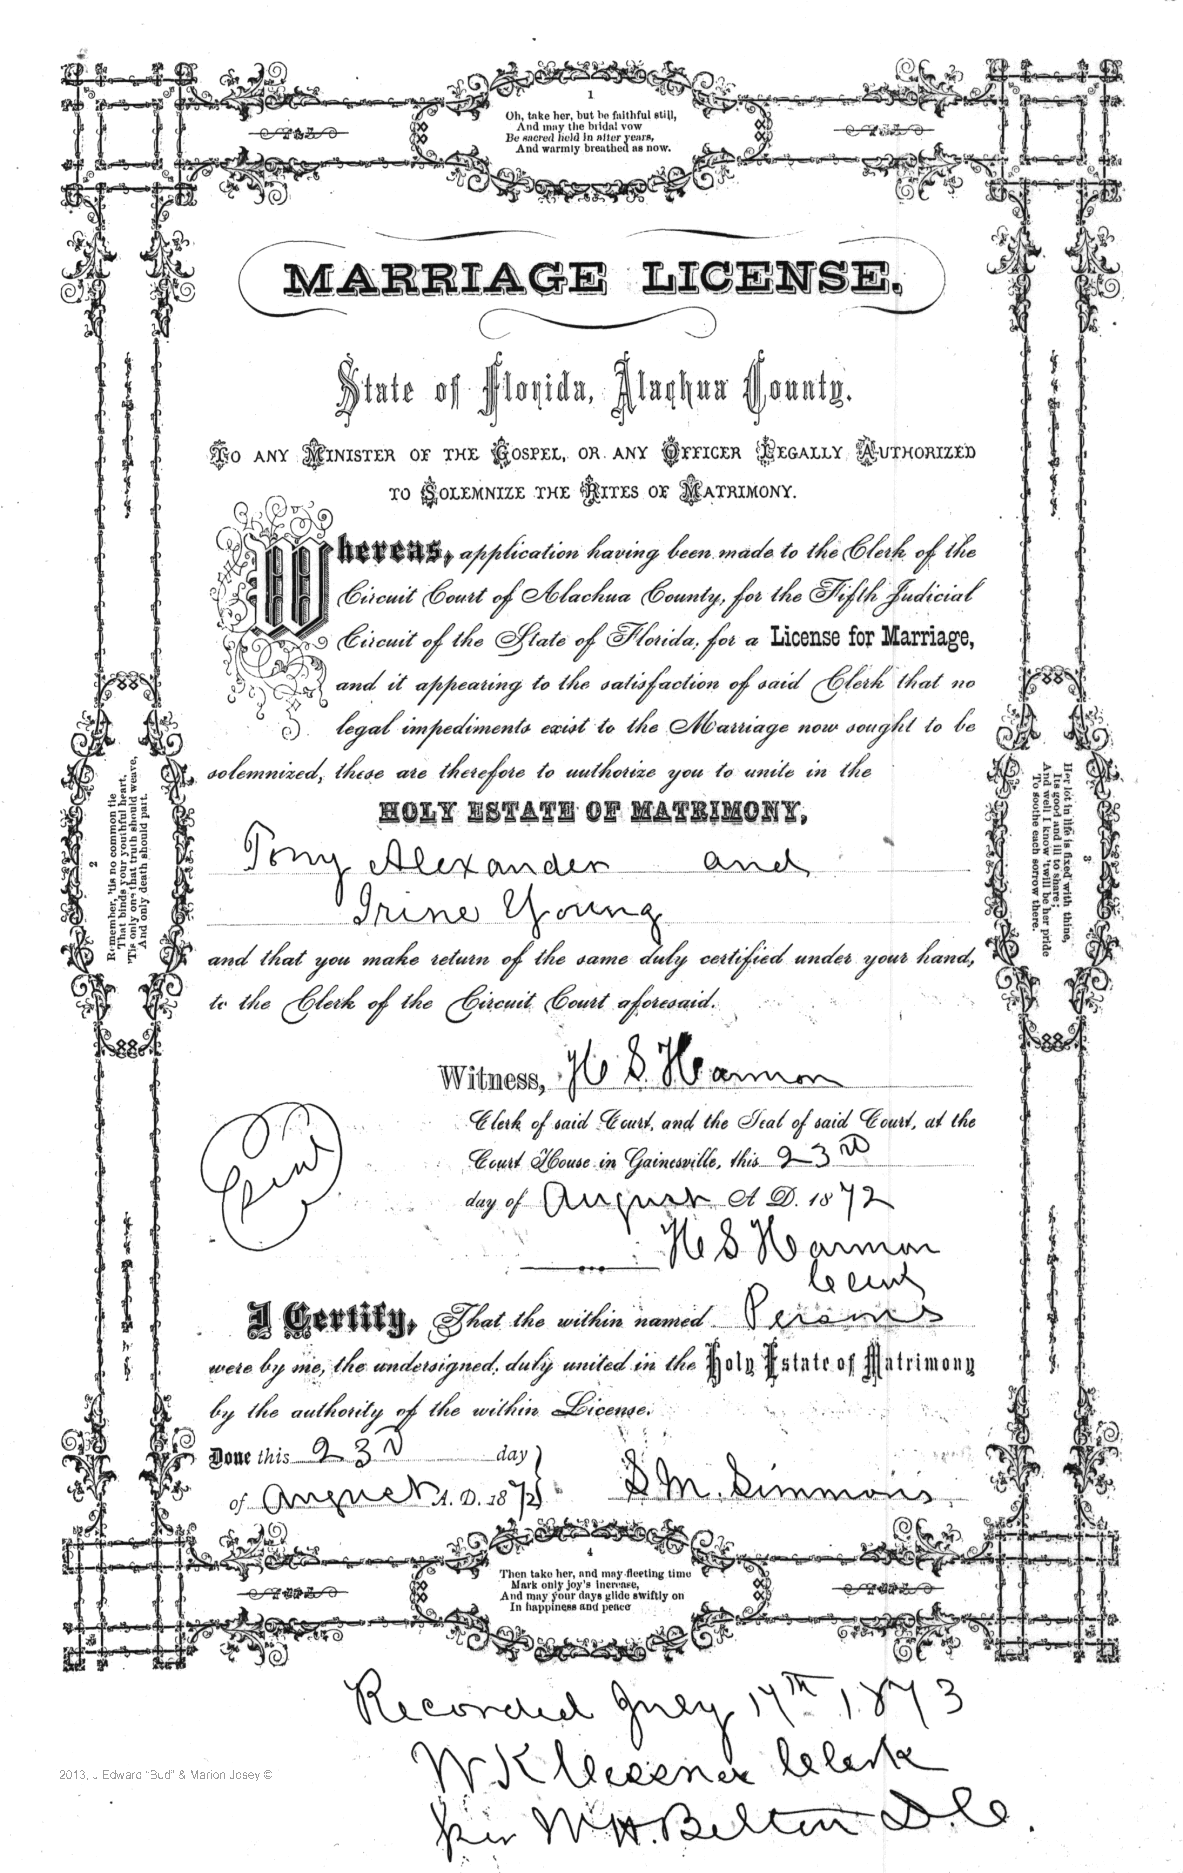 1
Oh, take her, but be faithful still,
And may the bridal vow
Be sacred held in after years,
And warmly breathed as now.
MARRIAGE LICENSE.
State of Florida, Alachua County.
TO ANY MINISTER OF THE GOSPEL, OR ANY OFFICER LEGALLY AUTHORIZED
TO SOLEMNIZE THE RITES OF MATRIMONY.
Whereas, application having been made to the Clerk of the
Circuit Court of Alachua County, for the Fifth Judicial
Circuit of the State of Florida, for a License for Marriage,
and it appearing to the satisfaction of said Clerk that no
legal impediments exist to the Marriage now sought to be
solemnized, these are therefore to authorize you to unite in the
HOLY ESTATE OF MATRIMONY,
Tony Alexander and
Irine Young
and that you make return of the same duly certified under your hand,
to the Clerk of the Circuit Court aforesaid.
2
Remember, 'tis no common tie
That binds your youthful heart,
'Tis only one that truth should weave,
And only death should part.
3
Her lot in life is fixed with thine,
Its good and ill to share;
And well I know 'twill be her pride
To soothe each sorrow there.
Witness, H S. Harmon
Clerk of said Court, and the Seal of said Court, at the
Court House in Gainesville, this 23rd
day of August A D. 1872
Seal
H S Harmon
Clerk
I Certify, That the within named Persons
were by me, the undersigned, duly united in the Holy Estate of Matrimony
by the authority of the within License.
Done this 23rd day
of August A. D. 1872
S M. Simmons
4
Then take her, and may fleeting time
Mark only joy's increase,
And may your days glide swiftly on
In happiness and peace
Recorded July 17th 1873
W K Clerk
per W H. Belton D. C.
2013, J Edward "Bud" & Marion Josey ©